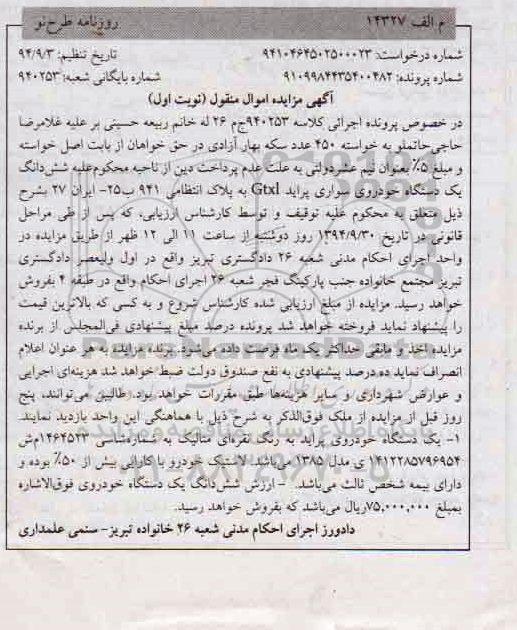 م الف ۱۴۳۲۷ روزنامه طرح نو
شماره درخواست: ۹۴۱۰۴۶۴۵۰۲۵۰۰۰۲۳ تاریخ تنظیم: ۹۴/۹/۳
شماره پرونده: ۹۱۰۹۹۸۴۴۳۵۴۰۰۴۸۲ شماره بایگانی شعبه: ۹۴۰۲۵۳
آگهی مزایده اموال منقول (نوبت اول)
در خصوص پرونده اجرائی کلاسه ۹۴۰۲۵۳ج‌م ۲۶ له خانم ربیعه حسینی بر علیه غلامرضا
حاجی‌حاتملو به خواسته ۴۵۰ عدد سکه بهار آزادی در حق خواهان از بابت اصل خواسته
و مبلغ ۵٪ بعنوان نیم عشردولتی به علت عدم پرداخت دین از ناحیه محکوم‌علیه شش‌دانگ
یک دستگاه خودروی سواری پراید Gtxl به پلاک انتظامی ۹۴۱ ب۲۵- ایران ۲۷ بشرح
ذیل متعلق به محکوم علیه توقیف و توسط کارشناس ارزیابی، که پس از طی مراحل
قانونی در تاریخ ۱۳۹۴/۹/۳۰ روز دوشنبه از ساعت ۱۱ الی ۱۲ ظهر از طریق مزایده در
واحد اجرای احکام مدنی شعبه ۲۶ دادگستری تبریز واقع در اول ولیعصر دادگستری
تبریز مجتمع خانواده جنب پارکینگ فجر شعبه ۲۶ اجرای احکام واقع در طبقه ۴ بفروش
خواهد رسید. مزایده از مبلغ ارزیابی شده کارشناس شروع و به کسی که بالاترین قیمت
را پیشنهاد نماید فروخته خواهد شد پرونده درصد مبلغ پیشنهادی فی‌المجلس از برنده
مزایده اخذ و مابقی حداکثر یک ماه فرصت داده می‌شود. برنده مزایده به هر عنوان اعلام
انصراف نماید ده درصد پیشنهادی به نفع صندوق دولت ضبط خواهد شد هزینه‌ای اجرایی
و عوارض شهرداری و سایر هزینه‌ها طبق مقررات خواهد بود. طالبین می‌توانند، پنج
روز قبل از مزایده از ملک فوق‌الذکر به شرح ذیل با هماهنگی این واحد بازدید نمایند.
۱- یک دستگاه خودروی پراید به رنگ نقره‌ای متالیک به شماره‌شاسی ۱۴۶۴۵۲۳م‌ش
۱۴۱۲۲۸۵۷۹۶۹۵۴ ی مدل ۱۳۸۵ می‌باشد. لاستیک خودرو با کارایی بیش از ۵۰٪ بوده و
دارای بیمه شخص ثالث می‌باشد. - ارزش شش‌دانگ یک دستگاه خودروی فوق‌الاشاره
بمبلغ ۷۵,۰۰۰,۰۰۰ریال می‌باشد که بفروش خواهد رسید.
دادورز اجرای احکام مدنی شعبه ۲۶ خانواده تبریز- ستمی علمداری